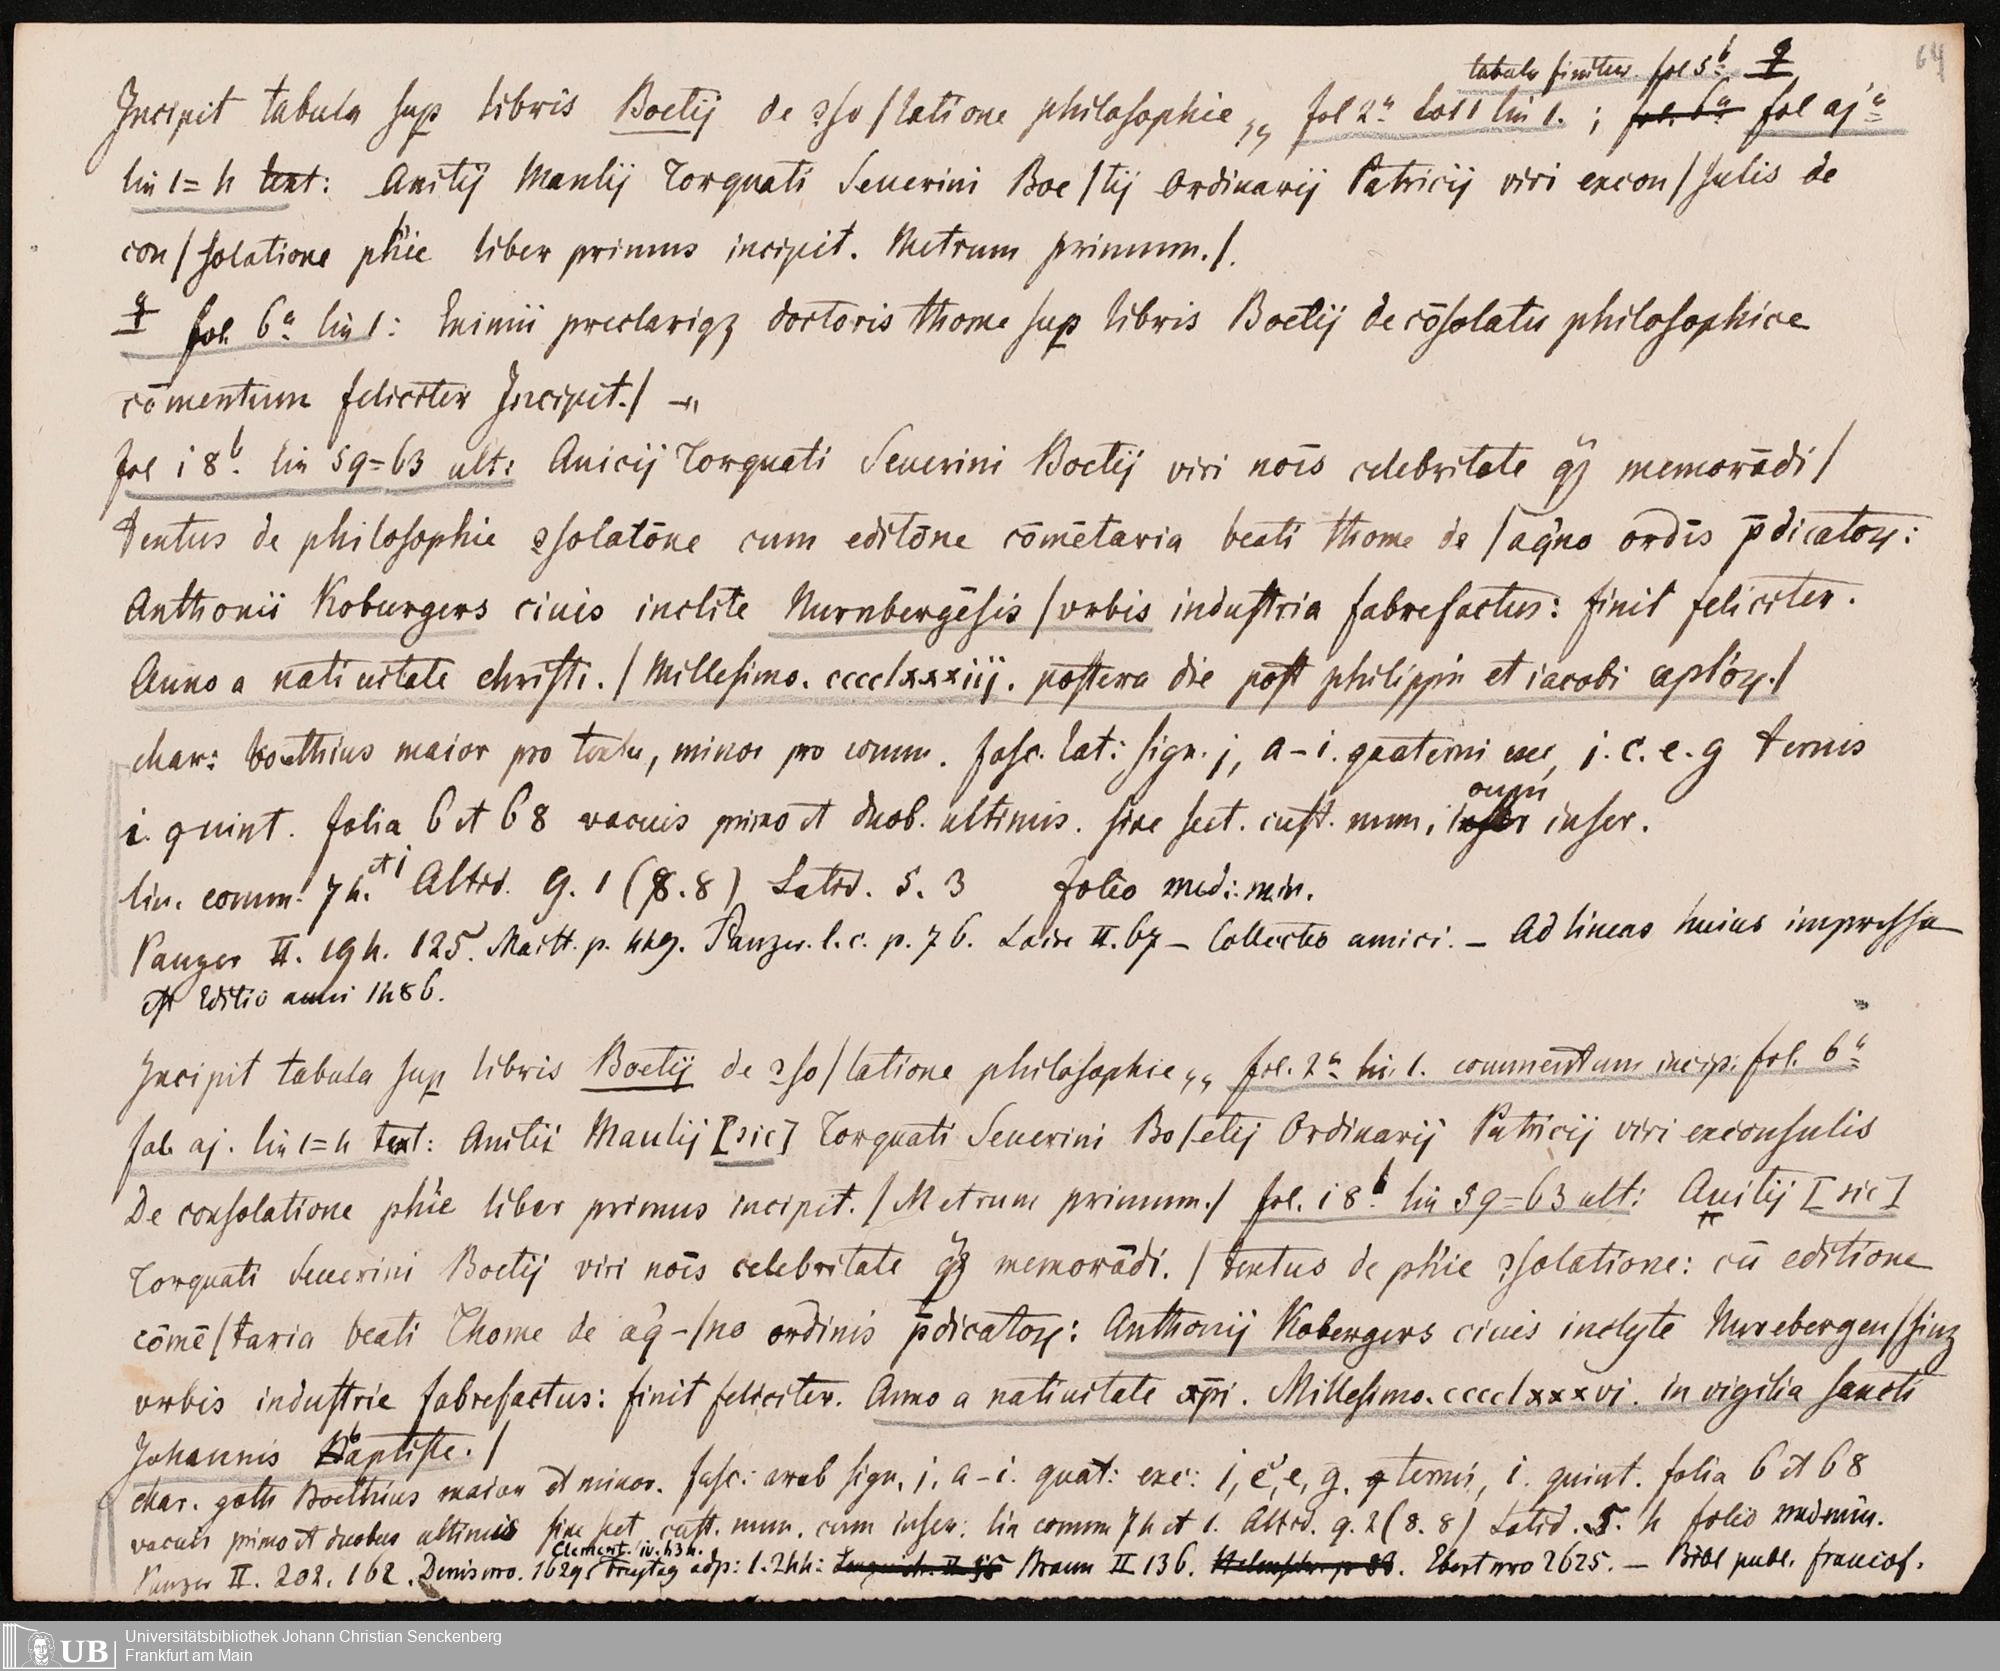 64
tabula finitur fol 5b
Incipit tabula sup libris Boetij de ꝯso/latione philosophie,, fol 2a col 1 lin 1. ; fol. 6a fol aja
lin 1=4 text: Anitij Manlij Torquati Seuerini Boe/tij Ordinarij Patricij viri excon/sulis de
con/solatione phie liber primus incipit. Metrum primum./.
fol. 6a lin 1: Eximii preclariqz doctoris thome sup libris Boetij de cōsolatu philosophice
cōmentum feliciter Incipit./
fol i 8b lin 59=63 ult: Anicij Torquati Seuerini Boetij viri nois celebritate qz memorādi/
textus de philosophie ꝯsolatōne cum editōne cōmētaria beati thome de /aq̄no ordīs p̄dicatoꝝ:
Anthonii Koburgers ciuis inclite Nurnbergēsis /vrbis industria fabrefactus: finit feliciter.
Anno a natiuitate christi. / Millesimo. cccclxxxiij. postera die post philippi et iacobi apl'oꝝ./
char: boethius maior pro textu, minor pro comm. fasc. lat: sign. j, a-i. quaterni exc, j. c. e. g ternis
i. quint. folia 6 et 68 vacuis primo et duob. ultimis. sine sect. cust. num, cum inser.
lin. comm. 74. et 1 Altid. 9. 1 (8.8) Latid. 5. 3 folio medi: min.
Panzer II. 194. 125. Maitt. p. 449. Panzer. l. c. p. 76. Laire II. 67 – Collectio amici. – Ad lineas huius impressa
est Editio anni 1486.
Incipit tabula sup libris Boetij de ꝯso/latione philosophie,, fol. 2a lin. 1. commentum incip. fol. 6a
fol. aj. lin 1=4 text: Anitii Maulij [sic] Torquati Seuerini Bo/etij Ordinarij Patricij viri exconsulis
De consolatione phie liber primus incipit. / Metrum primum./ fol. i 8b lin 59=63 ult: Auitij [sic]
Torquati Seuerini Boetij viri nois celebritate qz memorādi. / textus de phie ꝯsolatione: cū editione
cōmē/taria beati Thome de aq̄-/no ordinis p̄dicatoꝝ: Anthonij Kobergers ciuis inclyte Nurebergen/sinz
vrbis industrie fabrefactus: finit feliciter. Anno a natiuitate xp̄i. Millesimo. cccclxxxvi. in vigilia sancti
Johannis Baptiste. /
char. goth Boethius maior et minor. fasc: arab sign. j, a-i. quat: exc: j, c, e, g. ternis, i. quint. folia 6 et 68
vacuis primo et duobus ultimis sine sect. cust. num. cum inser: lin comm 74 et 1. Altid. 9. 2 (8.8) Latid. 5. 4 folio med min.
Clement. iv. 434.
Panzer II. 202. 162. Denis nro. 1629 Freytag adp: 1. 244: Braun II 136. Ebert nro 2625. – Bibl publ. francof.
UB Universitätsbibliothek Johann Christian Senckenberg
Frankfurt am Main